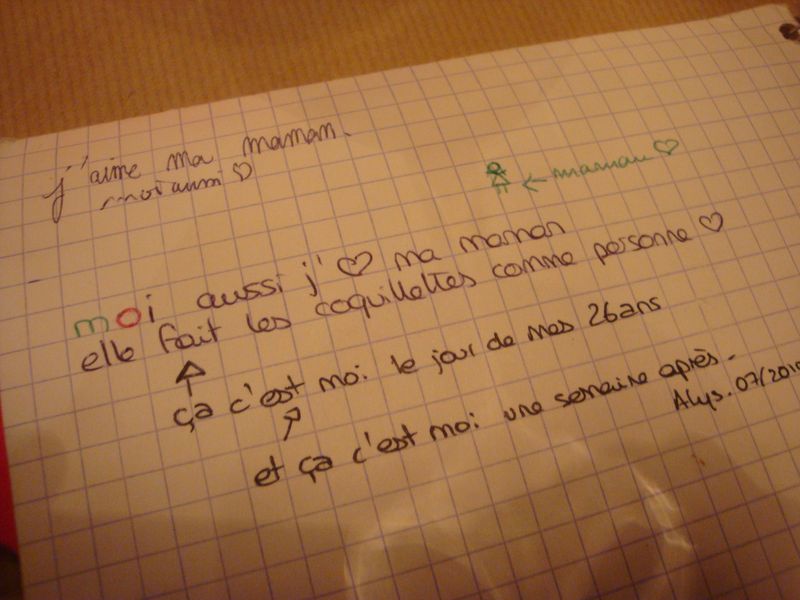 j'aime ma maman.
moi aussi ♡
← maman ♡
moi aussi j'♡ ma maman
elle fait les coquillettes comme personne ♡
ça c'est moi le jour de mes 26ans
et ça c'est moi une semaine après.
Alys. 07/2010